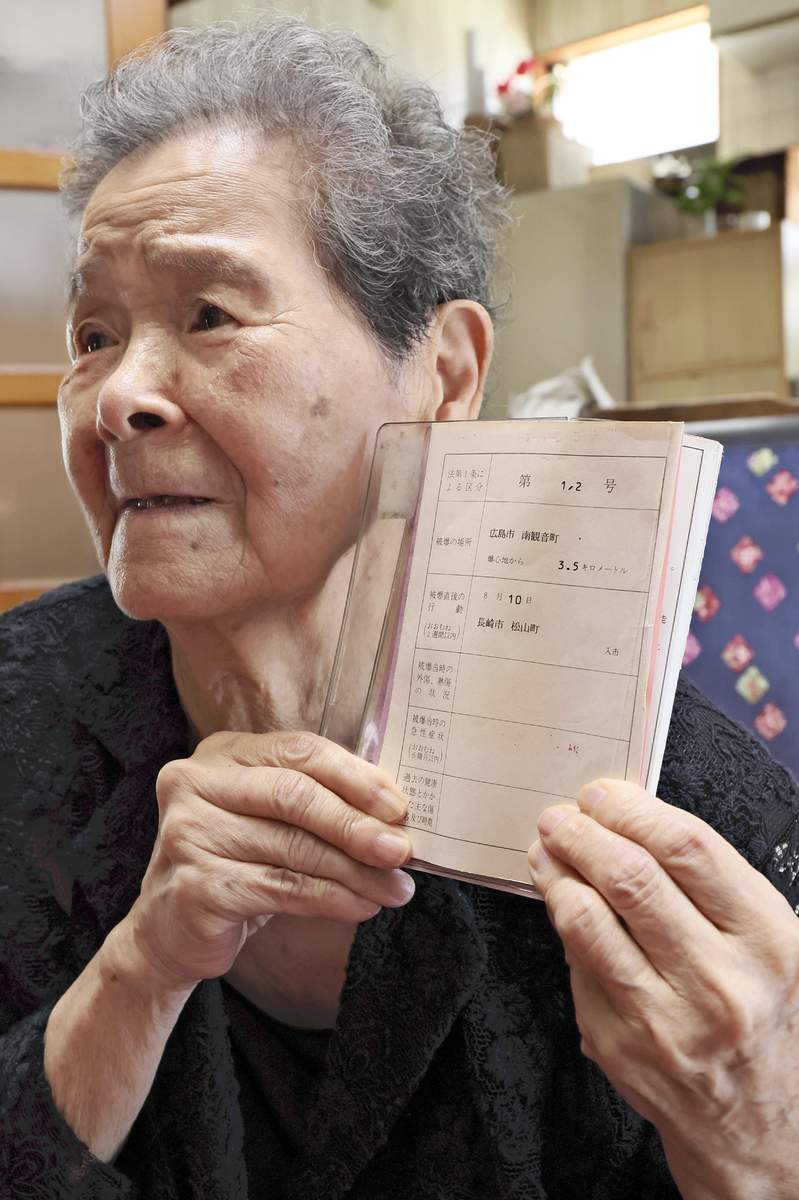 法第1条に
よる区分
第 1,2 号
被爆の場所
広島市 南観音町
爆心地から 3.5キロメートル
被爆直後の
行動
(おおむね
2週間以内)
8月10日
長崎市 松山町
入市
被爆当時の
外傷、熱傷
の状況
被爆当時の
急性症状
(おおむね
6箇月以内)
過去の健康
状態とかか
た主な傷
及び時期